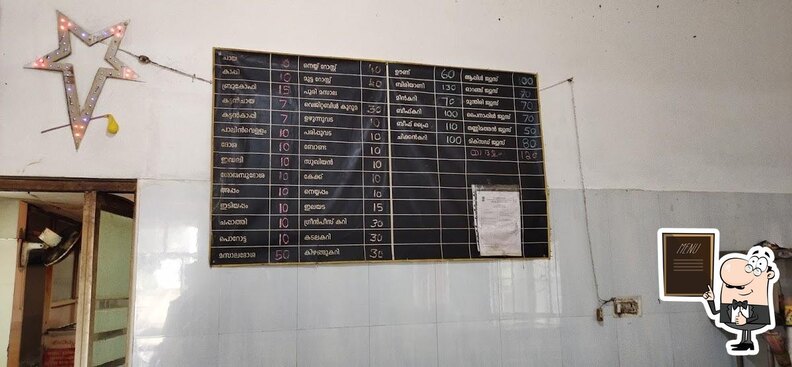 ചായ 
കാപ്പി 10
ബ്രൂകോഫി 15
കട്ടൻചായ 7
കട്ടൻകാപ്പി 7
പാലിൻവെള്ളം 10
ദോശ 10
ഇഡ്ഡലി 10
ഗോതമ്പുദോശ 10
അപ്പം 10
ഇടിയപ്പം 10
ചപ്പാത്തി 10
പൊറോട്ട 10
മസാലദോശ 50
നെയ്യ് റോസ്റ്റ് 40
മുട്ട റോസ്റ്റ്
പൂരി മസാല
വെജിറ്റബിൾ കുറുമ 30
ഉഴുന്നുവട
പരിപ്പുവട 10
ബോണ്ട 10
സുഖിയൻ 10
കേക്ക് 10
നെയ്യപ്പം 10
ഇലയട 15
ഗ്രീൻപീസ് കറി 30
കടലകറി 30
കിഴങ്ങുകറി 30
ഊണ് 60
ബിരിയാണി 130
മീൻകറി 70
ബീഫ്കറി 100
ബീഫ് ഫ്രൈ 110
ചിക്കൻകറി 100
ആപ്പിൾ ജൂസ് 100
ഓറഞ്ച് ജൂസ് 70
മുന്തിരി ജൂസ് 70
പൈനാപ്പിൾ ജൂസ് 70
തണ്ണിമത്തൻ ജൂസ് 50
മിക്സഡ് ജൂസ് 80
120
MENU